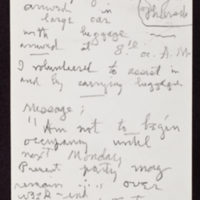 arrived in
large car
with luggage
arrived at 8 10 a. A.M
I volunteered to assist in
and by carrying luggage
Message;
"Am not to begin
occupancy until
next Monday
Present party may
remain ... over